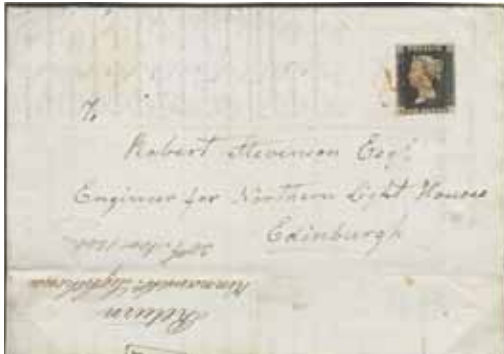 To
Robert Stevenson Esqr.
Engineer for Northern Light Houses
Edinburgh
Return
Lighthouse